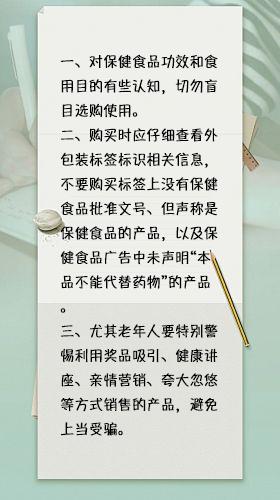 一、对保健食品功效和食
用目的有些认知，切勿盲
目选购使用。
二、购买时应仔细查看外
包装标签标识相关信息，
不要购买标签上没有保健
食品批准文号、但声称是
保健食品的产品，以及保
健食品广告中未声明“本
品不能代替药物”的产品
。
三、尤其老年人要特别警
惕利用奖品吸引、健康讲
座、亲情营销、夸大忽悠
等方式销售的产品，避免
上当受骗。